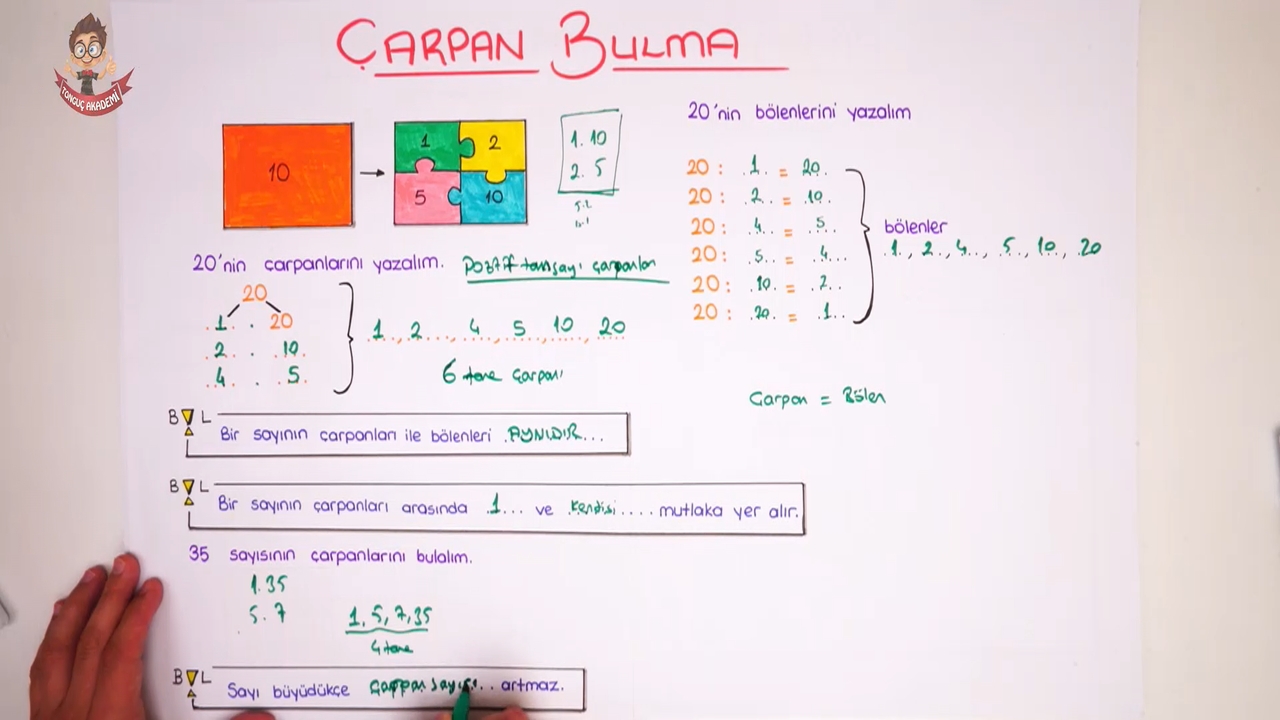 TONGUÇ AKADEMİ
ÇARPAN BULMA
10
1 2
5 10
1.10
2.5
5.2
10.1
20'nin carpanlarını yazalım. Pozitif tamsayı çarpanları
20
.1. . 20
.2. . .10.
.4. . .5.
1, 2..., 4, 5, 10, 20
6 tane çarpanı
20'nin bölenlerini yazalım
20 : .1. = 20.
20 : .2.. = .10.
20 : .4.. = .5..
20: ..5.. = .4...
20 : .10. = .2..
20 : .20. = .1..
bölenler
.1., 2., 4.., .5., 10., 20
Çarpan = Bölen
BİL
Bir sayının çarpanları ile bölenleri .AYNIDIR...
BİL
Bir sayının çarpanları arasında .1... ve .kendisi.... mutlaka yer alır.
35 sayısının çarpanlarını bulalım.
1.35
5.7
1, 5, 7, 35
4 tane
BİL
Sayı büyüdükçe çarpan sayısı.. artmaz.